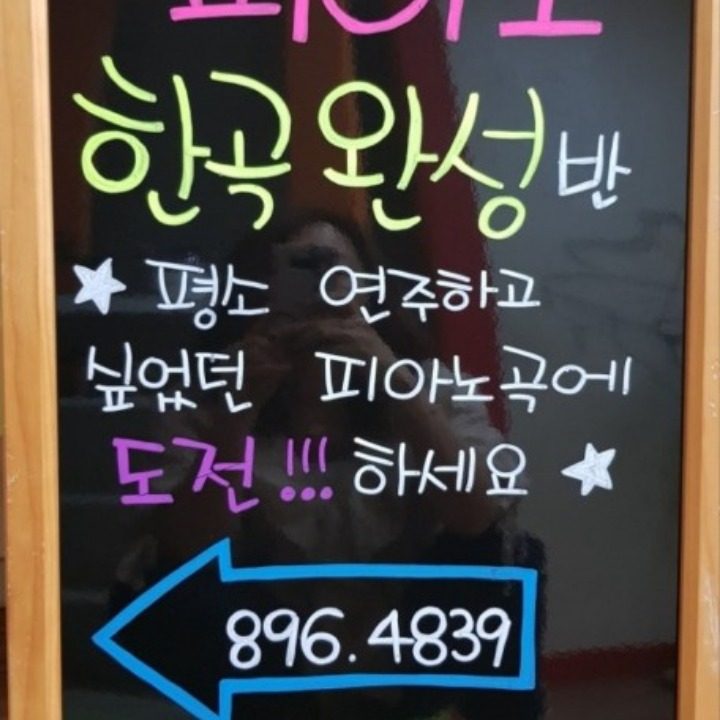 피아노
한곡 완성반
★ 평소 연주하고
싶었던 피아노곡에
도전!!! 하세요 ★
896.4839